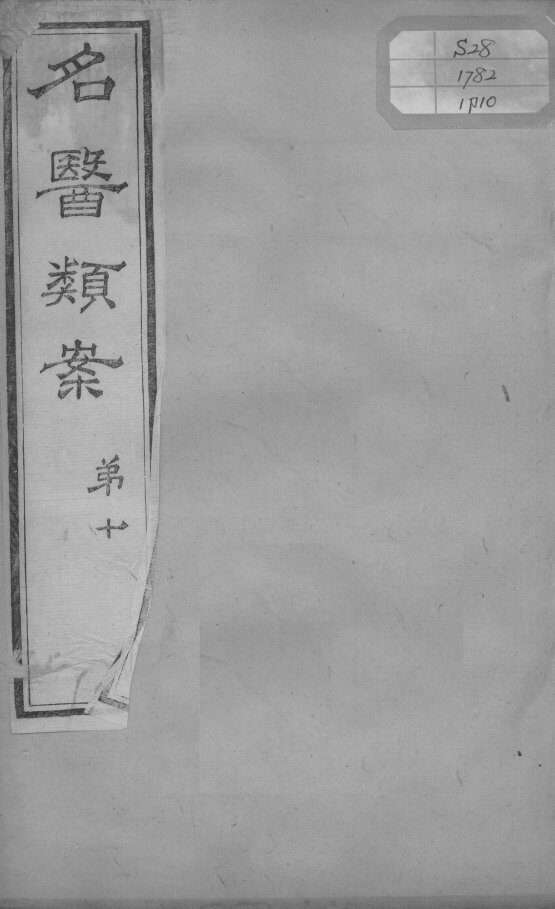 名醫類案
弟十
S28
1782
1月10